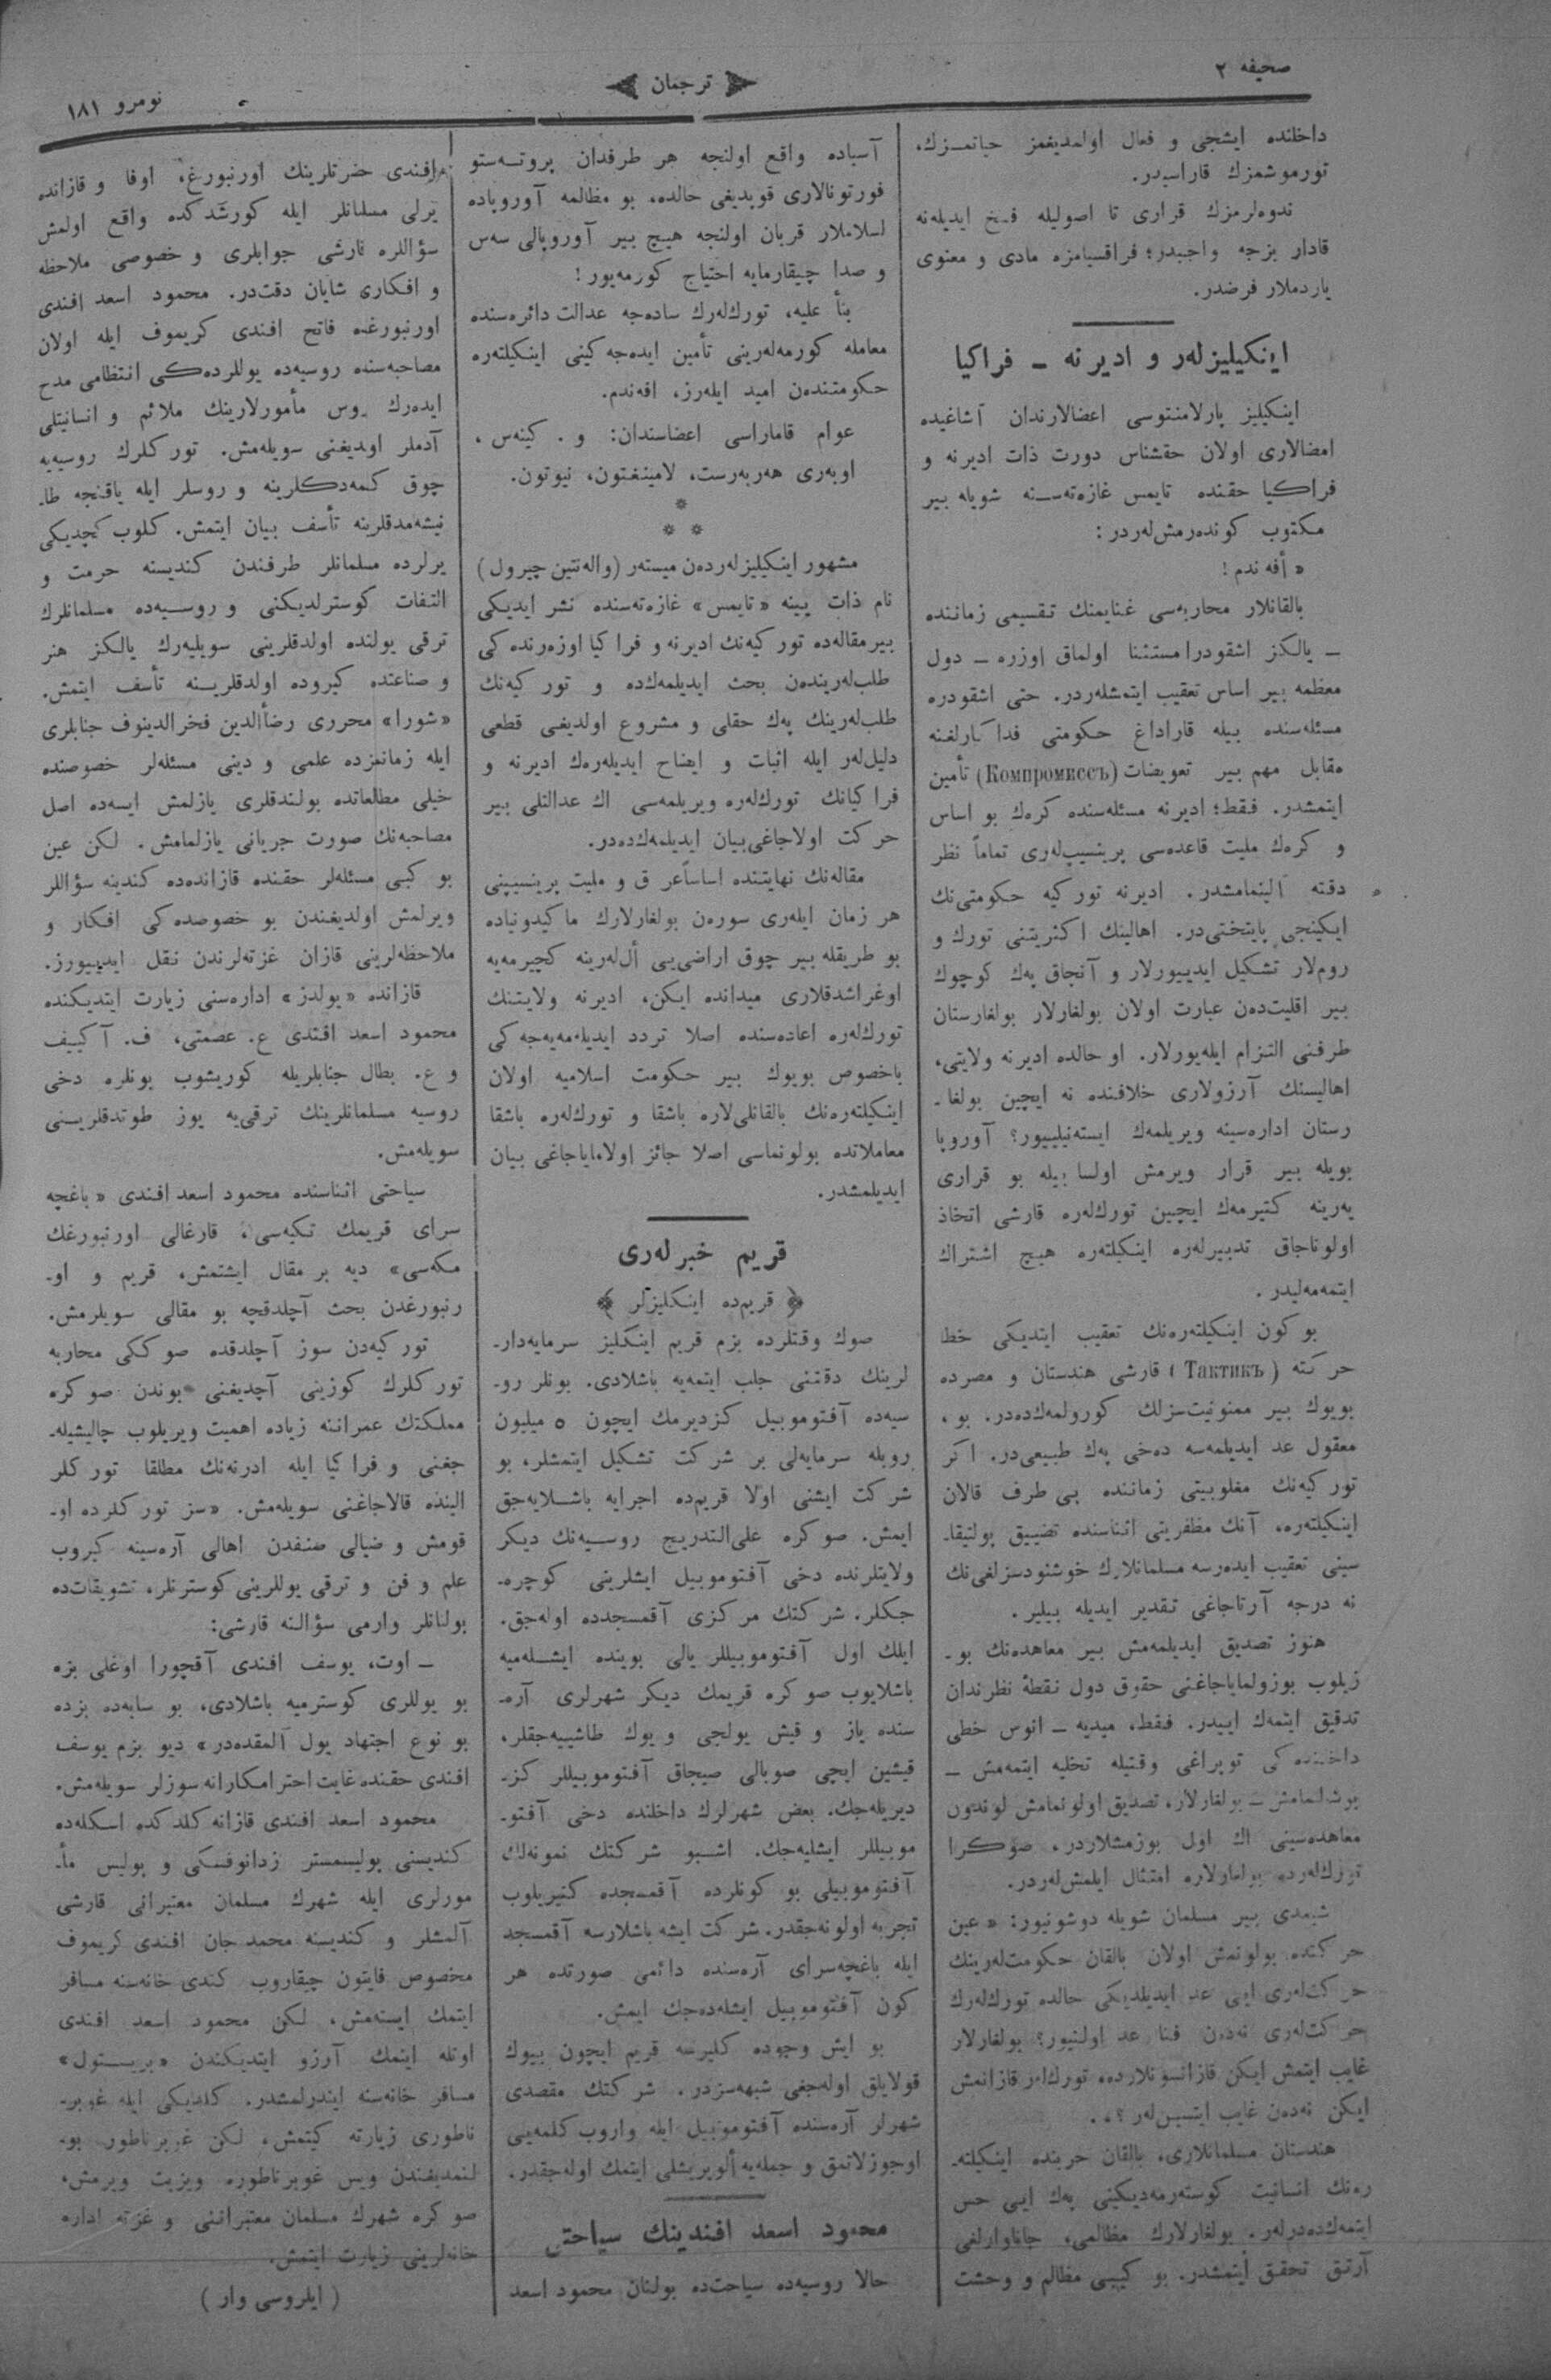 صحیفه ٢
ترجمان
نومرو ١٨١
داخلنده ایشجی و فعال اولمدیغمز حیاتمـزك،
تورموشمزك قاراسیدر.
ندوه‌لرمزك قراری تا اصولیله فسخ ایدیله‌نه
قادار بزجه واجبدر؛ فراقسیامزه مادی و معنوی
یاردملار فرضدر.
اینكیلیزلەر و ادیرنه ـ فراكیا
اینكیلیز پارلامنتوسی اعضالارندان آشاغیده
امضالاری اولان حقشناس دورت ذات ادیرنه و
فراكیا حقنده تایمس غازەتەسـنه شویله بیر
مكتوب كوندەرمش‌لەردر :
« أفەندم !
بالقانلار محاربەسی غنایمنك تقسیمی زماننده
ـ یالكز اشقودرا مستثنا اولماق اوزره ـ دول
معظمه بیر اساس تعقیب ایتمشلەردر. حتی اشقودره
مسئلەسنده بیله قاراداغ حكومتی فداكارلغنه
مقابل مهم بیر تعویضات (Компромиссъ) تأمین
ایتمشدر. فقط؛ ادیرنه مسئلەسنده كرەك بو اساس
و كرەك ملیت قاعدەسی پرینسیپ‌لەری تماماً نظر
دقته آلینمامشدر. ادیرنه توركیه حكومتی‌نك
ایكینجی پایتختی‌در. اهالینك اكثریتنی تورك و
روم‌لار تشكیل ایدییورلار و آنجاق پەك كوچوك
بیر اقلیت‌دەن عبارت اولان بولغارلار بولغارستان
طرفنی التزام ایلەیورلار. او حالده ادیرنه ولایتی،
اهالیسنك آرزولاری خلافنده نه ایچین بولغا ـ
رستان ادارەسینه ویریلمەك ایستەنیلییور؟ آوروپا
بویله بیر قرار ویرمش اولسا بیله بو قراری
یەرینه كتیرمەك ایچین تورك‌لەره قارشی اتخاذ
اولوناجاق تدبیرلەره اینكیلتەره هیچ اشتراك
ایتمەمەلیدر .
بو كون اینكیلتەرەنك تعقیب ایتدیكی خط
حركته ( Тактикъ ) قارشی هندستان و مصرده
بویوك بیر ممنونیت‌سزلك كورولمەكدەدر. بو،
معقول عد ایدیلمەسه دەخی پەك طبیعی‌در. اكر
توركیەنك مغلوبیتی زماننده بی طرف قالان
اینكیلتەره، آنك مظفریتی اثناسنده تضییق پولتیقا ـ
سینی تعقیب ایدەرسه مسلمانلارك خوشنودسزلغی‌نك
نه درجه آرتاجاغی تقدیر ایدیله بیلیر .
هنوز تصدیق ایدیلمەمش بیر معاهدەنك بو ـ
زیلوب بوزولمایاجاغنی حقوق دول نقطۀ نظرندان
تدقیق ایتمەك اییدر. فقط، میدیه ـ انوس خطی
داخلنده‌كی توپراغی وقتیله تخلیه ایتمەمش ـ
بوشالمامش ـ بولغارلار، تصدیق اولونمامش لوندون
معاهدەسینی اك اول بوزمشلاردر، صوكرا
تورك‌لەرده بولغارلاره امتثال ایلمش‌لەردر.
شیمدی بیر مسلمان شویله دوشونیور: « عین
حركتده بولونمش اولان بالقان حكومت‌لەرینك
حركت‌لەری ایی عد ایدیلدیكی حالده تورك‌لەرك
حركت‌لەری نەدەن فنا عد اولنیور؟ بولغارلار
غایب ایتمش ایكن قازانسونلارده، تورك‌لەر قازانمش
ایكن نەدەن غایب ایتسین‌لەر ؟».
هندستان مسلمانلاری، بالقان حربنده اینكیلتە ـ
رەنك انسانیت كوستەرمەدیكینی پەك ایی حس
ایتمەكدەدرلەر. بولغارلارك مظالمی، جاناوارلغی
آرتق تحقق ایتمشدر. بو كیبی مظالم و وحشت
آسیاده واقع اولنجه هر طرفدان پروتـەستو
فورتونالاری قوپدیغی حالده، بو مظالمه آوروپاده
اسلاملار قربان اولنجه هیچ بیر آوروپالی سەس
و صدا چیقارمایه احتیاج كورمەیور !
بنأ علیه، تورك‌لەرك سادەجه عدالت دائرەسنده
معامله كورمەلەرینی تأمین ایدەجەكینی اینكیلتەره
حكومتندەن امید ایلەرز، افەندم.
عوام قاماراسی اعضاسندان: و . كینەس ،
اوبەری هەربەرست، لامینغتون، نیوتون.
*
* *
مشهور اینكیلیزلەردەن میستەر (والەنتین چیرول)
نام ذات یینه «تایمس» غازەتەسنده نشر ایدیكی
بیر مقالەده توركیەنك ادیرنه و فراكیا اوزەرندەكی
طلب‌لەریندەن بحث ایدیلمەكده و توركیەنك
طلب‌لەرینك پەك حقلی و مشروع اولدیغی قطعی
دلیل‌لەر ایله اثبات و ایضاح ایدیلەرەك ادیرنه و
فراكیانك تورك‌لەره ویریلمەسی اك عدالتلی بیر
حركت اولاجاغی بیان ایدیلمەكدەدر.
مقالەنك نهایتنده اساساً عرق و ملیت پرینسیپنی
هر زمان ایلەری سورەن بولغارلارك ماكیدونیاده
بو طریقله بیر چوق اراضی‌یی أل‌لەرینه كچیرمەیه
اوغراشدقلاری میدانده ایكن، ادیرنه ولایتنك
تورك‌لەره اعادەسنده اصلا تردد ایدیلەمەیەجەكی
باخصوص بویوك بیر حكومت اسلامیه اولان
اینكیلتەرەنك بالقانلی‌لاره باشقا و تورك‌لەره باشقا
معاملاتده بولونماسی اصلا جائز اولامایاجاغی بیان
ایدیلمشدر.
قریم خبرلەری
﴿ قریم‌ده اینكلیزلر ﴾
صوك وقتلرده بزم قریم اینكلیز سرمایەدار ـ
لرینك دقتنی جلب ایتمەیه باشلادی. بونلر رو ـ
سیەده آفتوموبیل كزدیرمك ایچون ٥ میلیون
روبله سرمایەلی بر شركت تشكیل ایتمشلر، بو
شركت ایشنی اولا قریم‌ده اجرایه باشـلایەجق
ایمش. صوكره علی‌التدریج روسـیەنك دیكر
ولایتلرنده دخی آفتوموبیل ایشلرینی كوچرە ـ
جكلر. شركتك مركزی آقمسجدده اولەجق.
ایلك اول آفتوموبیللر یالی بوینده ایشـلەمیه
باشلایوب صوكره قریمك دیكر شهرلری آرە ـ
سنده یاز و قیش یولجی و یوك طاشییەجقلر،
قیشین ایچی صوبالی صیجاق آفتوموبیللر كز ـ
دیریلەجك. بعض شهرلرك داخلنده دخی آفتو ـ
موبیللر ایشلیەجك. اشـبو شركتك نمونەلك
آفتوموبیلی بو كونلرده آقمسجده كتیریلوب
تجربه اولونەجقدر. شركت ایشه باشلارسه آقمسجد
ایله باغچەسرای آرەسنده دائمی صورتده هر
كون آفتوموبیل ایشلەدەجك ایمش.
بو ایش وجوده كلیرسه قریم ایچون بیوك
قولایلق اولەجغی شبهەسزدر. شركتك مقصدی
شهرلر آرەسنده آفتوموبیل ایله واروب كلمەیی
اوجوزلاتمق و جملەیه ألویریشلی ایتمك اولەجقدر.
محمود اسعد افندینك سیاحتی
حالا روسیەده سیاحت‌ده بولنان محمود اسعد
افندی حضرتلرینك اورنبورغ، اوفا و قازانده
یرلی مسلمانلر ایله كورشدكده واقع اولمش
سؤاللره قارشی جوابلری و خصوصی ملاحظه
و افكاری شایان دقت‌در. محمود اسعد افندی
اورنبورغده فاتح افندی كریموف ایله اولان
مصاحبەسنده روسیەده یوللردەكی انتظامی مدح
ایدەرك روس مأمورلارینك ملائم و انسانیتلی
آدملر اودیغنی سویلەمش. توركلرك روسیەیه
چوق كلمەدكلرینه و روسلر ایله یاقنجه طا ـ
نیشەمدقلرینه تأسف بیان ایتمش. كلوب كچدیكی
یرلرده مسلمانلر طرفندن كندیسنه حرمت و
التفات كوسترلدیكنی و روسـیەده مسلمانلرك
ترقی یولنده اولدقلرینی سویلیەرك یالكز هنر
و صناعتده كیروده اولدقلریـنه تأسف ایتمش.
«شورا» محرری رضأالدین فخرالدینوف جنابلری
ایله زمانمزده علمی و دینی مسئلەلر خصوصنده
خیلی مطالعاتده بولندقلری یازلمش ایسەده اصل
مصاحبەنك صورت جریانی یازلمامش. لكن عین
بو كبی مسئلەلر حقنده قازاندەده كندینه سؤاللر
ویرلمش اولدیغندن بو خصوصدەكی افكار و
ملاحظەلرینی قازان غزتەلرندن نقل ایدییورز.
قازانده «یولدز» ادارەسنی زیارت ایتدیكنده
محمود اسعد افندی ع. عصمتی، ف. آكییف
و ع. بطال جنابلریله كوریشوب بونلره دخی
روسیه مسلمانلرینك ترقی‌یه یوز طوتدقلریـنی
سویلەمش.
سیاحتی اثناسنده محمود اسعد افندی « باغچه
سرای قریمك تكیەسی، قارغالی اورنبورغك
مكەسی» دیه بر مقال ایشتمش، قریم و او ـ
رنبورغدن بحث آچلدقچه بو مقالی سویلرمش.
توركیەدن سوز آچلدقده صوككی محاربه
توركلرك كوزینی آچدیغنی بوندن صوكره
مملكتك عمراننه زیاده اهمیت ویریلوب چالیشیلە ـ
جغنی و فراكیا ایله ادرنەنك مطلقا توركلر
الینده قالاجاغنی سویلەمش. «سز توركلرده او ـ
قومش و ضیالی صنفدن اهالی آرەسینه كیروب
علم و فن و ترقی یوللرینی كوسترنلر، تشویقات‌ده
بولنانلر وارمی سؤالنه قارشی:
ـ اوت، یوسف افندی آقچورا اوغلی بزه
بو یوللری كوسترمیه باشلادی، بو سایەده بزده
بو نوع اجتهاد یول آلمقدەدر» دیو بزم یوسف
افندی حقنده غایت احترامكارانه سوزلر سویلەمش.
محمود اسعد افندی قازانه كلدكده اسكلەده
كندیسنی پولیسمستر زدانوفسكی و پولیس مأ ـ
مورلری ایله شهرك مسلمان معتبرانی قارشی
آلمشلر و كندیسنه محمد جان افندی كریموف
مخصوص فایتون چیقاروب كندی خانەسنه مسافر
ایتمك ایستەمش، لكن محمود اسعد افندی
اوتله اینمك آرزو ایتدیكندن «بریـستول»
مسافر خانەسنه ایندرلمشدر. كلدیكی ایله غوبر ـ
ناطوری زیارته كیتمش، لكن غوبرناطور بو ـ
لنمدیغندن ویس غوبرناطوره ویزیت ویرمش،
صوكره شهرك مسلمان معتبراننی و غزته اداره
خانەلرینی زیارت ایتمش.
( ایلروسی وار )